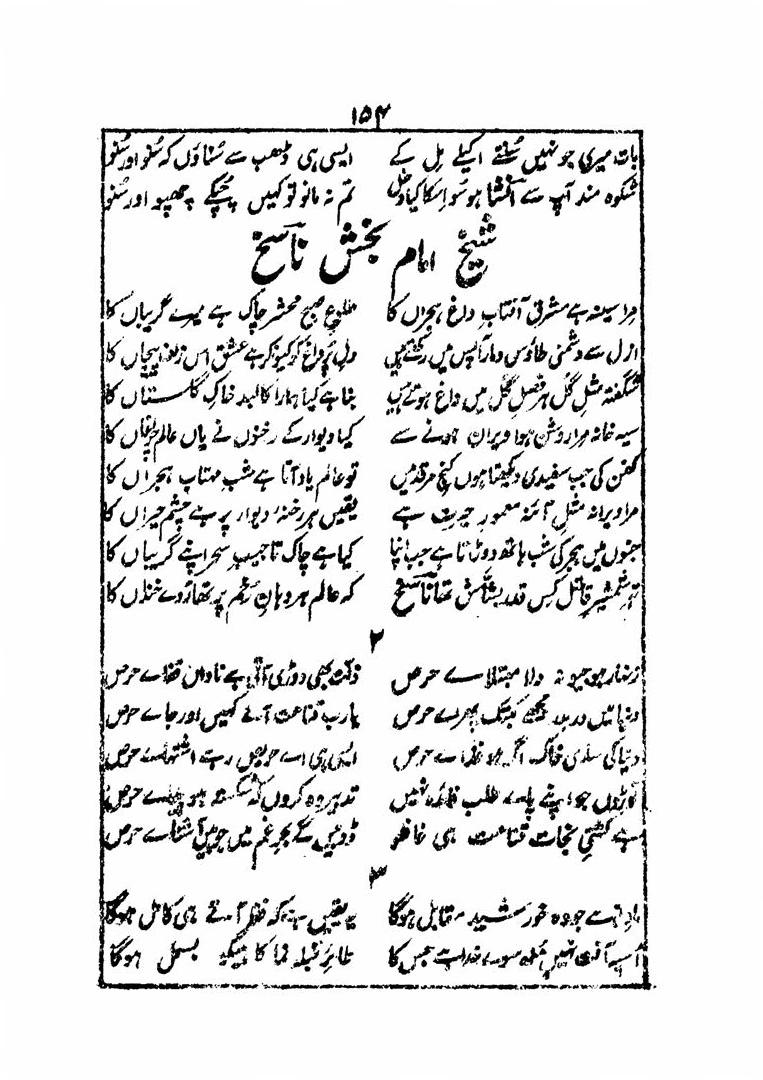 ۱۵۴
بات میری جو نہیں سُنتے اکیلے مِل کے ایسی ہی ڈھب سے سُناؤں کہ سُنو اور سُنو
شکوہ مند آپ سے افشا ہو سو اسکا کیا دخل تم نہ مانو تو کہیں چُپکے چھپو اور سُنو
شیخ امام بخش ناسخ
مرا سینہ ہے مشرق آفتاب داغِ ہجراں کا طلوعِ صبح محشر چاک ہے میرے گریباں کا
ازل سے دشمنی طاؤس و مار آپس میں رکھتے ہیں دلِ پُر داغ کو کیونکر ہے عشق اس زلفِ پیچاں کا
شگفتہ مثلِ گل ہر فصلِ گل میں داغ ہوتے ہیں بنا ہے کیا ہمارا کالبد خاکِ گلستاں کا
سیہ خانہ مرا روشن ہوا ویران ہونے سے کیا دیوار کے رخنوں نے یاں عالم چراغاں کا
کفن کی جب سفیدی دیکھتا ہوں کنجِ مرقد میں تو عالم یاد آتا ہے شبِ مہتاب ہجراں کا
مرا ویرانہ مثلِ آئنہ معمورِ حیرت ہے یقیں ہر رخنہ دیوار پر ہے چشمِ حیراں کا
جنوں میں ہجر کی شب ہاتھ دوڑاتا ہے جب اپنا کیا ہے چاک تا جیبِ سحر اپنے گریباں کا
تہِ شمشیر قاتل کس قدر بشاش تھا ناسخ کہ عالم ہر دہانِ زخم پر تھا روے خنداں کا
۲
زنہار ہو جیو نہ دلا مبتلاے حرص ذلت بھی دوڑی آتی ہے ناداں قفاے حرص
دنیا میں در بدر مجھے کبتک پھرے حرص یارب قناعت آئے کہیں اور جاے حرص
دنیا کی ساری خاک اگر ہو غذاے حرص ایسی ہی اے حریص رہے اشتہاے حرص
توڑوں جو اپنے پاے طلب فائدہ نہیں تدبیر وہ کروں کہ شکستہ ہو پاے حرص
ہے کشتیِ نجات قناعت ہی غافلو ڈوبیں گے بحرِ غم میں جو ہیں آشناے حرص
۳
جو وہ خورشید مقابل ہوگا یہ یقیں ہے کہ نظر آتے ہی کامل ہوگا
نہیں جس کا طائرِ قبلہ نما کا بسمل ہوگا